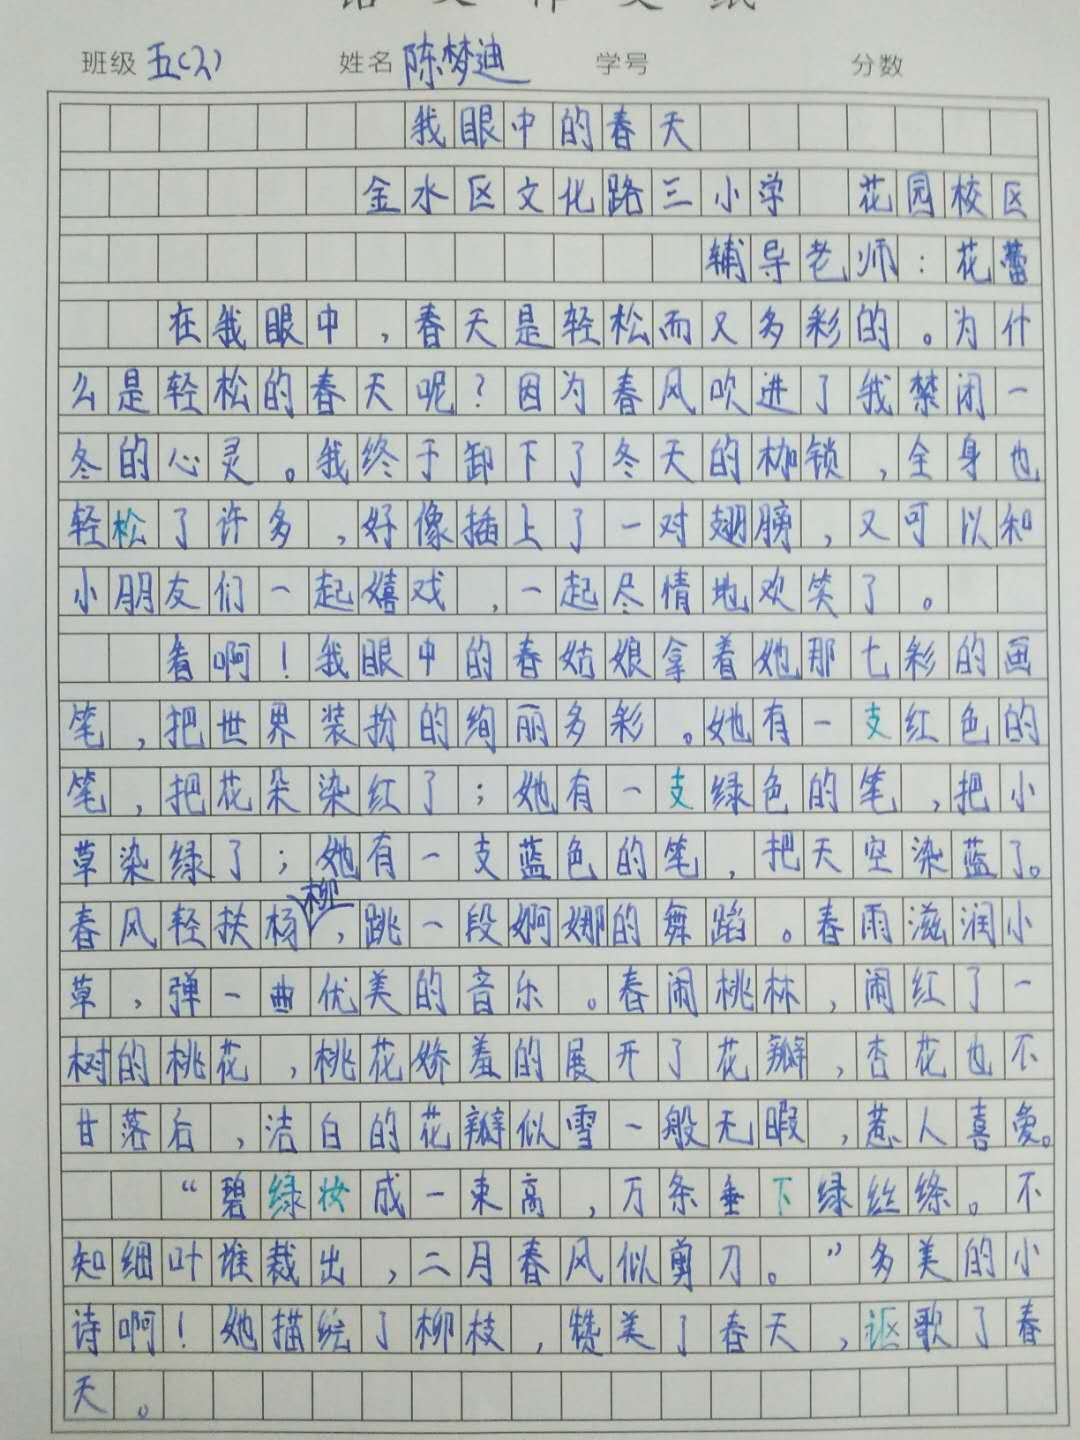 语文作文纸
班级 五(2) 姓名 陈梦迪 学号 分数
我眼中的春天
金水区文化路三小学 花园校区
辅导老师：花蕾
在我眼中，春天是轻松而又多彩的。为什
么是轻松的春天呢？因为春风吹进了我禁闭一
冬的心灵。我终于卸下了冬天的枷锁，全身也
轻松了许多，好像插上了一对翅膀，又可以和
小朋友们一起嬉戏，一起尽情地欢笑了。
看啊！我眼中的春姑娘拿着她那七彩的画
笔，把世界装扮的绚丽多彩。她有一支红色的
笔，把花朵染红了；她有一支绿色的笔，把小
草染绿了；她有一支蓝色的笔，把天空染蓝了。
春风轻扶杨柳，跳一段婀娜的舞蹈。春雨滋润小
草，弹一曲优美的音乐。春闹桃林，闹红了一
树的桃花，桃花娇羞的展开了花瓣，杏花也不
甘落后，洁白的花瓣似雪一般无暇，惹人喜爱。
“碧绿妆成一束高，万条垂下绿丝绦。不
知细叶谁裁出，二月春风似剪刀。”多美的小
诗啊！她描绘了柳枝，赞美了春天，讴歌了春
天。